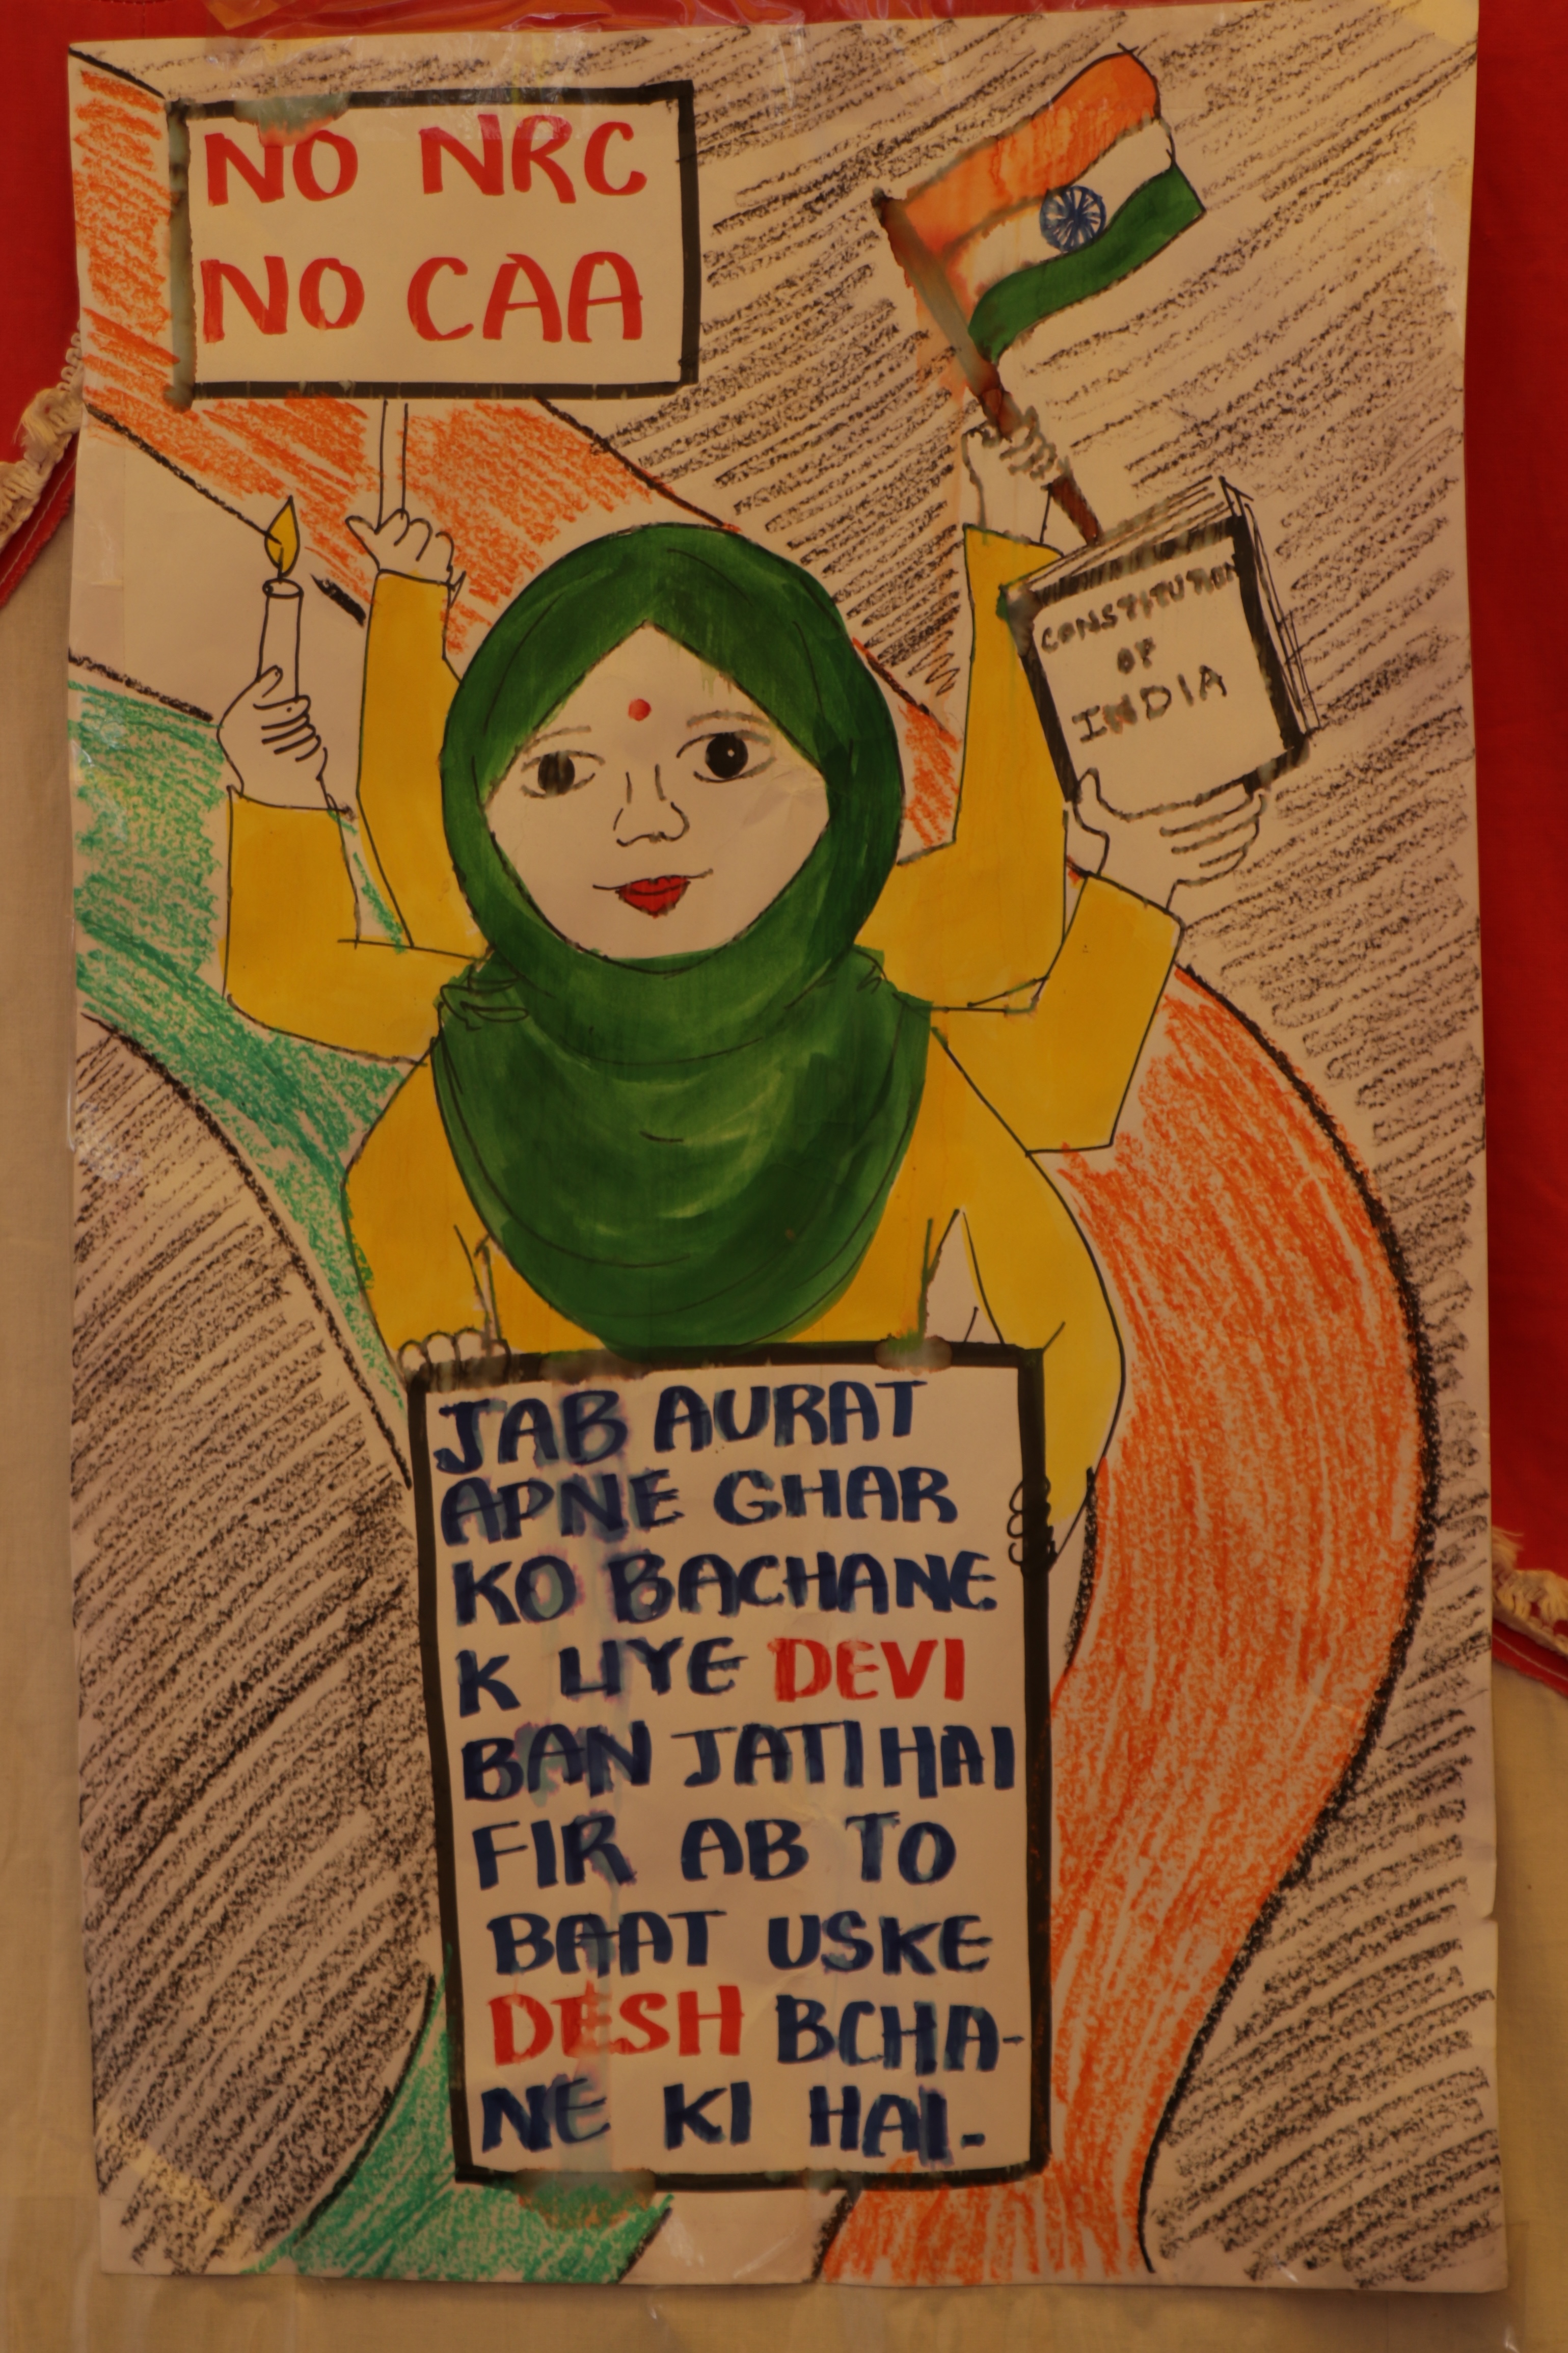 NO NRC
NO CAA
CONSTITUTION
OF
INDIA
JAB AURAT
APNE GHAR
KO BACHANE
K LIYE DEVI
BAN JATI HAI
FIR AB TO
BAAT USKE
DESH BCHA-
NE KI HAI.